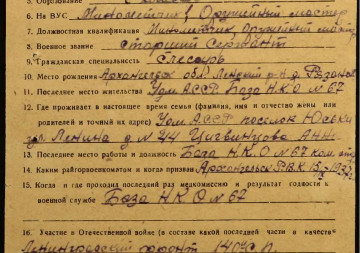 5. Образование
6. На ВУС Минометчик, Оружейный мастер
7. Должностная квалификация Минометчик, Оружейный мастер
8. Военное звание старший сержант
9. Гражданская специальность слесарь
10. Место рождения Архангельск. обл. Ленский р-н д.
11. Последнее место жительства Удм АССР База НКО № 67
12. Где проживает в настоящее время семья (фамилия, имя и отчество жены или
родителей и точный их адрес) Удм АССР поселок Юськи
ул. Ленина д. № 44
13. Последнее место работы и должность База НКО № 67
14. Каким райгорвоенкоматом и когда призван Архангельск РВК
15. Когда и где проходил последний раз медкомиссию и результат годности к
военной службе База НКО № 67
16. Участие в Отечественной войне (в составе какой последней части и качестве)
Ленинградский фронт